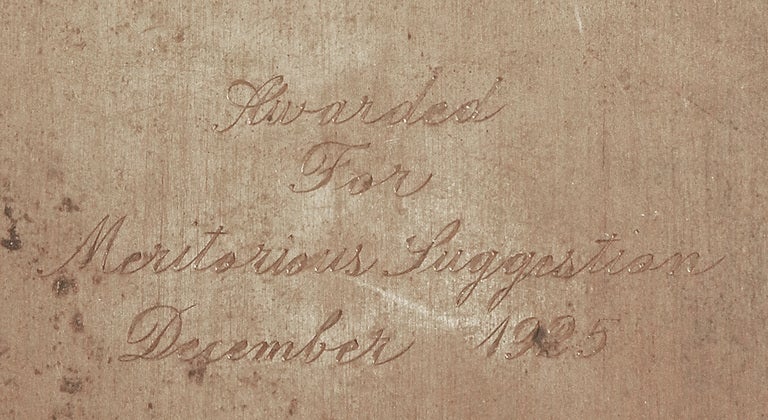 Awarded
For
Meritorious Suggestion
December 1925